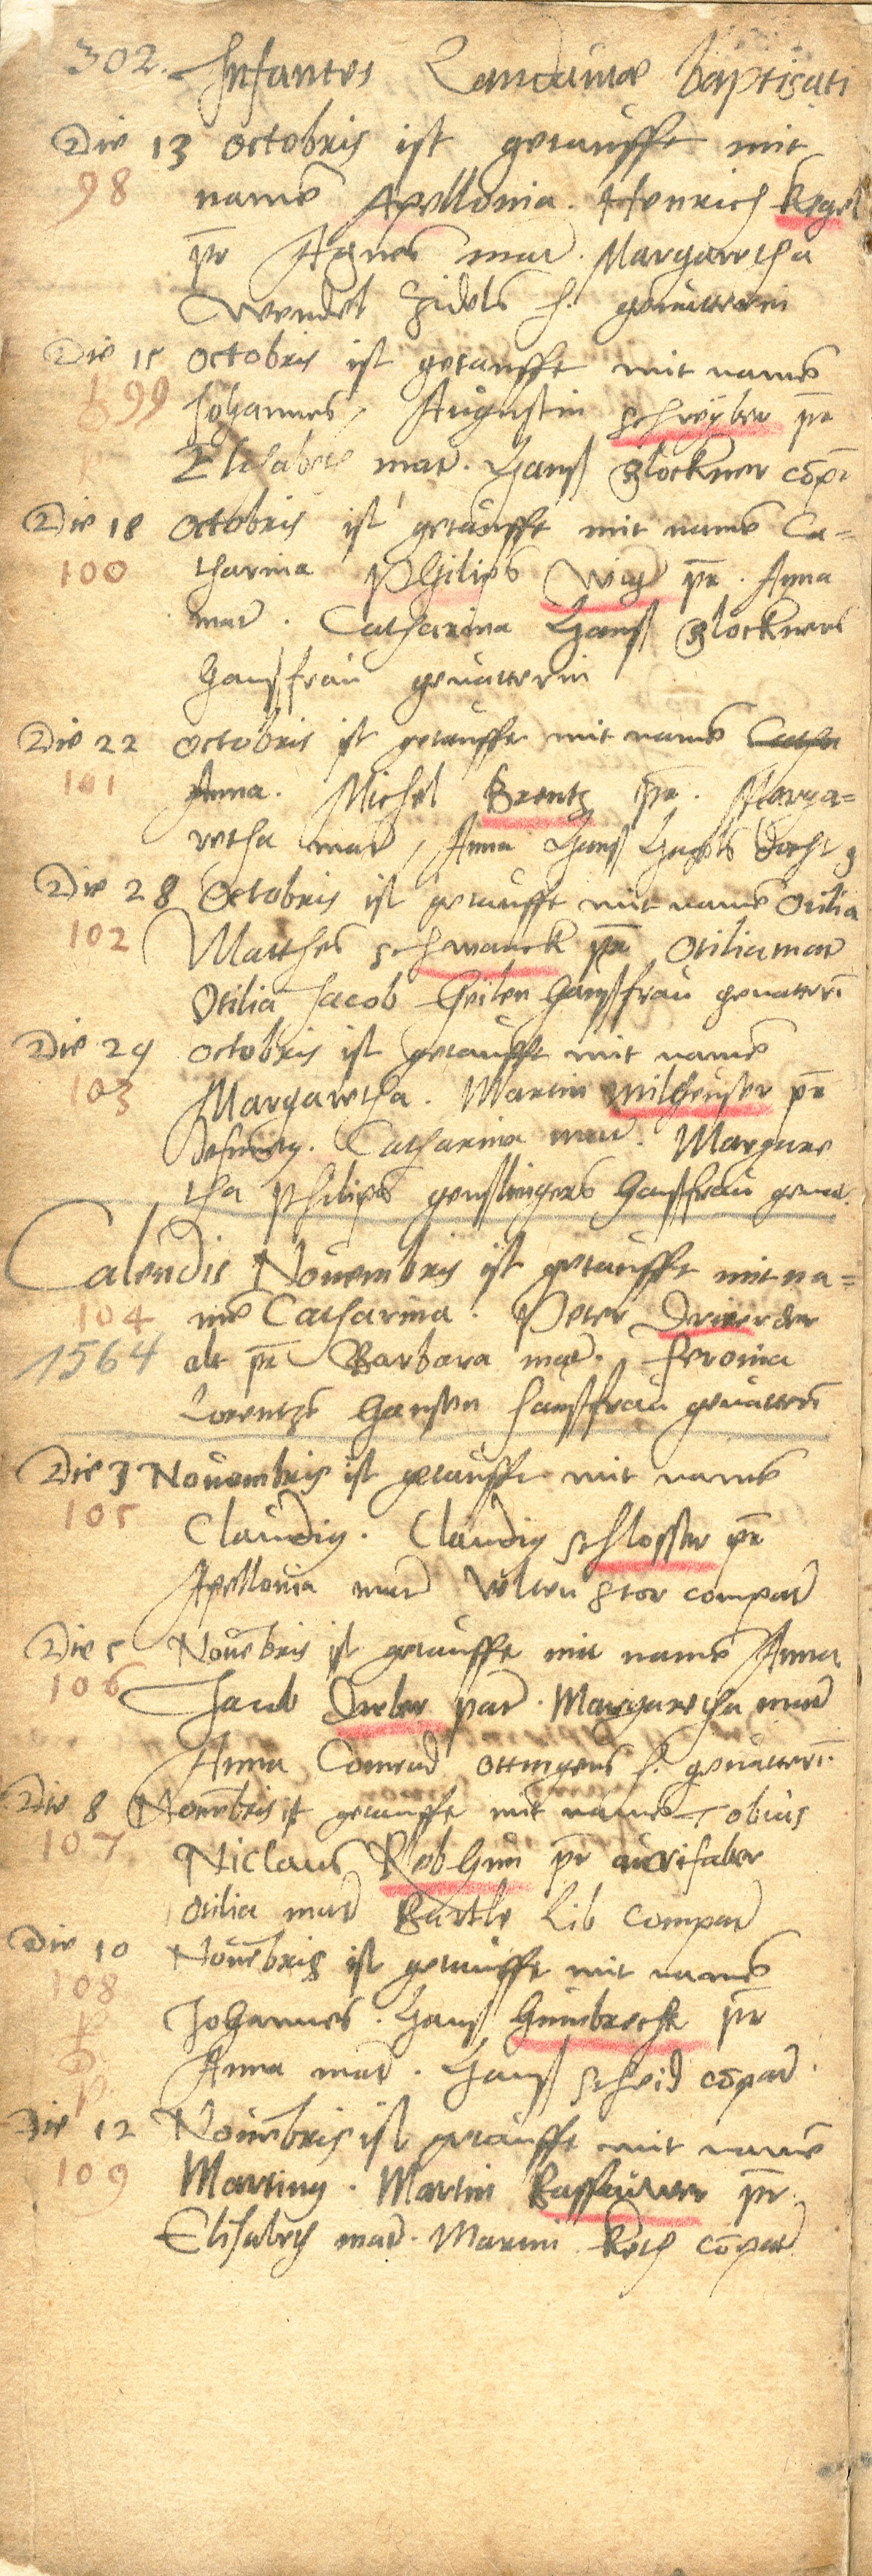 302. Infantes Landauiæ baptisati
Die 13 octobris ist getaufft mit
98 namē Apollonia. Henrich Kegel
pr̄ Agnes mat̄. Margaretha
Wendel Zidels h. geuatterin
Die 15 octobris ist getaufft mit namē
99 Johannes, Augustin schryber pr̄
Elisabeth mat̄. Hanß glockner cōp̄
Die 18 octobris ist getaufft mit namē Ca=
100 tharina Philips Wig pr̄. Anna
mat̄. Catharina Hanß glockners
haußfrau geuatterin
Die 22 octobris ist getaufft mit namē Catha
101 Anna. Michel Brentz pr̄. Marga=
retha mat̄, Anna Hanß
Die 28 octobris ist getaufft mit namē Otilia
102 Matthes schwanck pr̄ Otilia mat̄
Otilia Jacob Geilen haußfrau geuatterī
Die 29 octobris ist getaufft mit namē
103 Margaretha. Martin Milheuser pr̄
Catharina mat̄. Margare
tha Philips genslingers haußfrau geuat.
Calendis Nouembris ist getaufft mit na=
104 mē Catharina. Peter Drier der
1564 alt pr̄ Barbara mat̄. feronica
Lorentz Hansen haußfrau geuatterī
Die 3 Nouembris ist getaufft mit namē
105 Claudiy. Claudiy schlosser pr̄
Apollonia mat̄ Velten stor compat̄
Die 5 Nouēbris ist getaufft mit namē Anna
106 Jacob Dreher pat̄. Margaretha mat̄
Anna Conrad ottingers h. geuatterī
Die 8 Nouēbris ist getaufft mit namē Tobias
107 Niclaus Rebhun pr̄ aurifaber
Otilia mat̄ Bartle Lib compat̄
Die 10 Nouēbris ist getaufft mit namē
108 Johannes. Hanß Humbrecht pr̄
Anna mat̄. Hanß scheid cōpat̄.
Die 12 Nouēbris ist getaufft mit namē
109 Martiny. Martin Bassauwer pr̄.
Elisabeth mat̄. Martin Koch cōpat̄